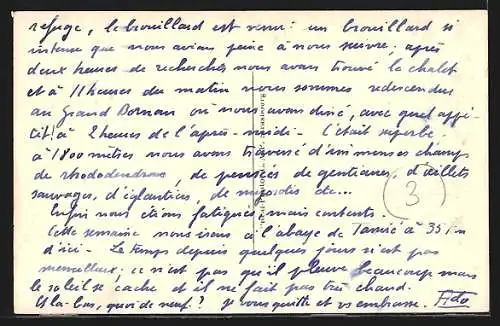 refuge, le brouillard est venu : un brouillard si
intense que nous avions peine à nous suivre, après
deux heures de recherches nous avons trouvé le chalet
et à 11 heures du matin nous sommes redescendus
au Grand Bornan où nous avons diné, avec quel appé-
tit ! à 2 heures de l'après-midi - C'était superbe.
à 1800 mètres nous avons traversé d'immenses champs
de rhododendrons, de pensées de gentianes, d'œillets
sauvages, d'églantines, de myosotis de...
Enfin nous étions fatigués mais contents.
Cette semaine nous irons à l'abbaye de Tamié à 35 km
d'ici - Le temps depuis quelques jours n'est pas
merveilleux, ce n'est pas qu'il pleuve beaucoup mais
le soleil se cache et il ne fait pas très chaud.
Et là-bas, quoi de neuf ? Je vous quitte et vs embrasse.
3